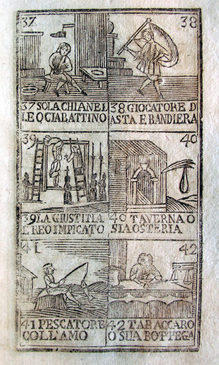 37
38
37 SOLA CHIANEL
LE O CIABATTINO
38 GIOCATORE D
ASTA E BANDIERA
39
40
39 LA GIUSTITIA
E REO IMPICATO
40 TAVERNA O
SIA OSTERIA
41
42
41 PESCATORE
COLL'AMO
42 TABACCARO
O SUA BOTTEGA